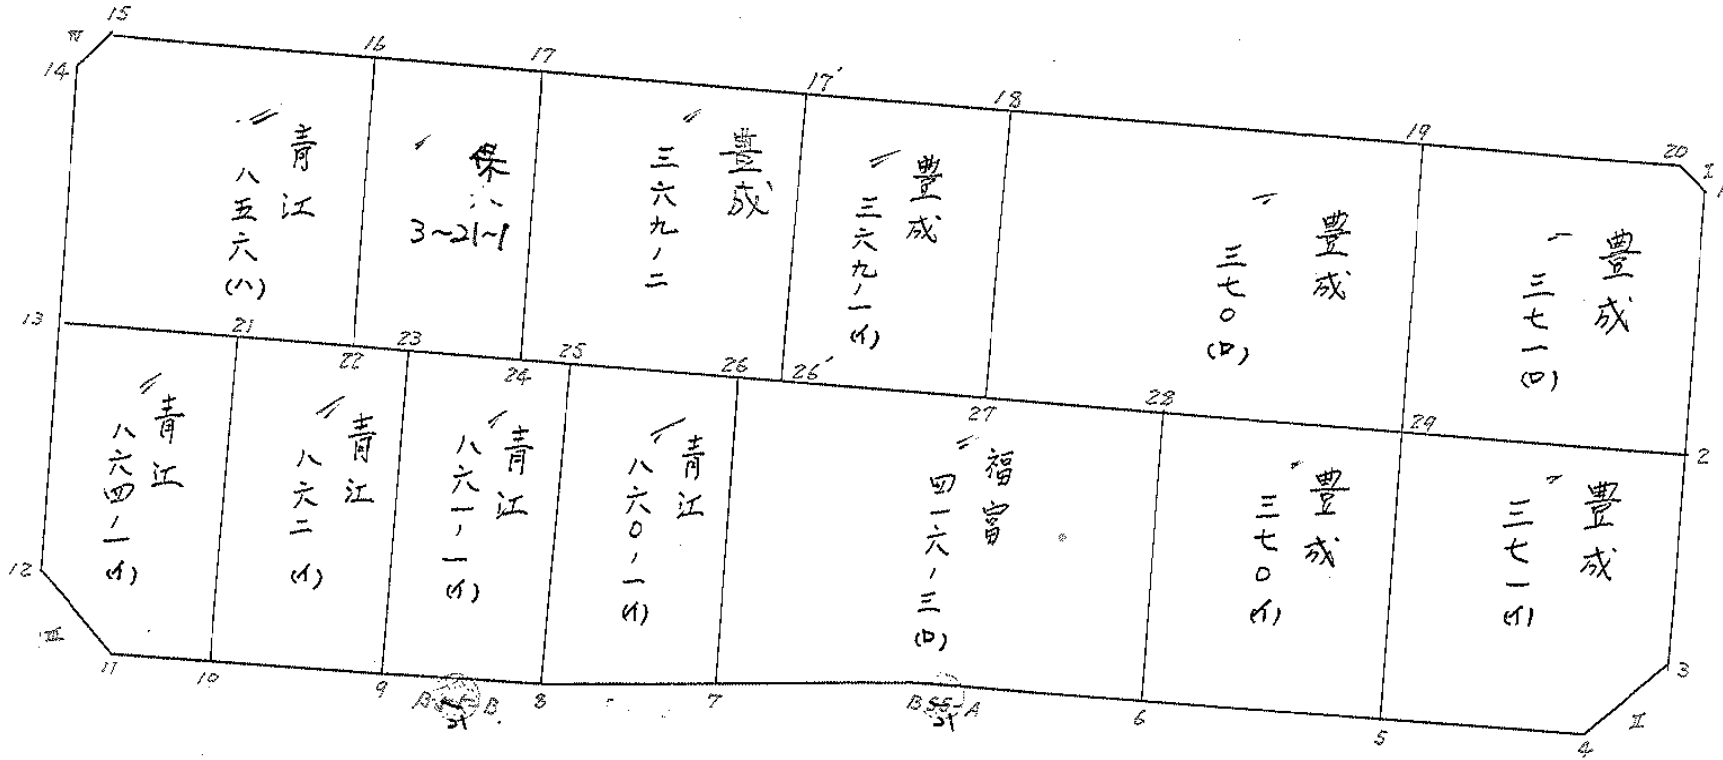 15
16
17
17′
18
19
20
I
1
IV
14
〃 青江
八五六(ハ)
〃 保
3~21~1
〃 豊成
三六九ノ二
〃 豊成
三六九ノ一(イ)
〃 豊成
三七〇(ロ)
〃 豊成
三七一(ロ)
13
21
22
23
24
25
26
26′
27
28
29
2
〃 青江
八六四ノ一(イ)
〃 青江
八六二(イ)
〃 青江
八六一ノ一(イ)
〃 青江
八六〇ノ一(イ)
〃 福富
四一六ノ三(ロ)
〃 豊成
三七〇(イ)
〃 豊成
三七一(イ)
12
III
11
10
9
B
B
8
7
B
A
6
5
4
II
3